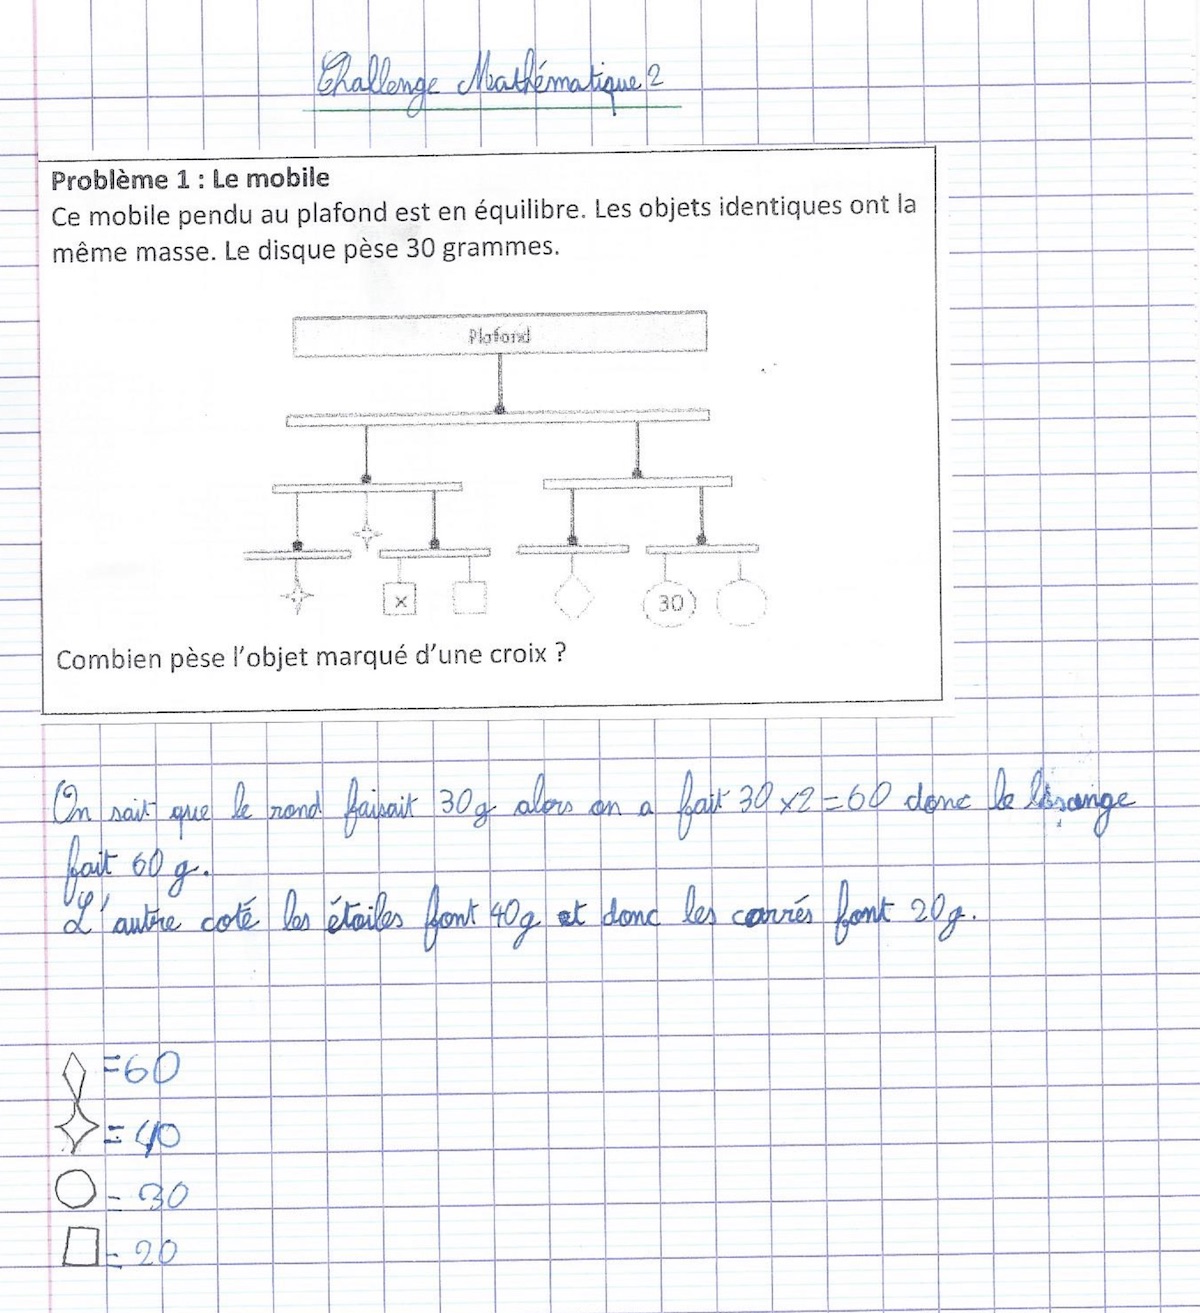 Challenge Mathématique 2
Problème 1 : Le mobile
Ce mobile pendu au plafond est en équilibre. Les objets identiques ont la
même masse. Le disque pèse 30 grammes.
Plafond
x
30
Combien pèse l'objet marqué d'une croix ?
On sait que le rond faisait 30g alors on a fait 30×2=60 donc le losange
fait 60 g.
L'autre coté les étoiles font 40g et donc les carrés font 20g.
=60
= 40
= 30
= 20